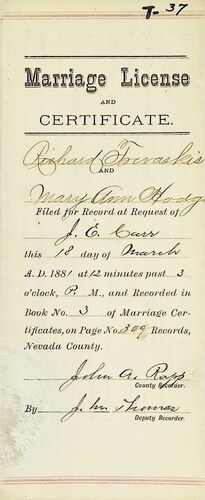 T-37
Marriage License
AND
CERTIFICATE.
Richard Trevaskis
AND
Mary Ann Hodge
Filed for Record at Request of
J. E. Carr
this 18 day of March
A. D. 1881 at 12 minutes past 3
o'clock, P. M., and Recorded in
Book No. 3 of Marriage Cer-
tificates, on Page No. 309 Records,
Nevada County.
John A. Rapp
County Recorder.
By Jno. Thomas
Deputy Recorder.